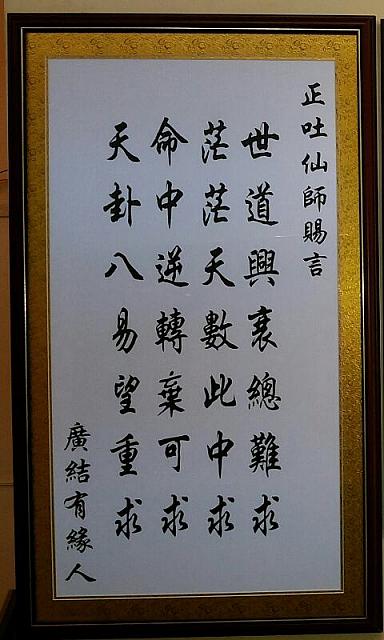 正吐仙師賜言
世道興衰總難求
茫茫天數此中求
命中逆轉棄可求
天卦八易望重求
廣結有緣人